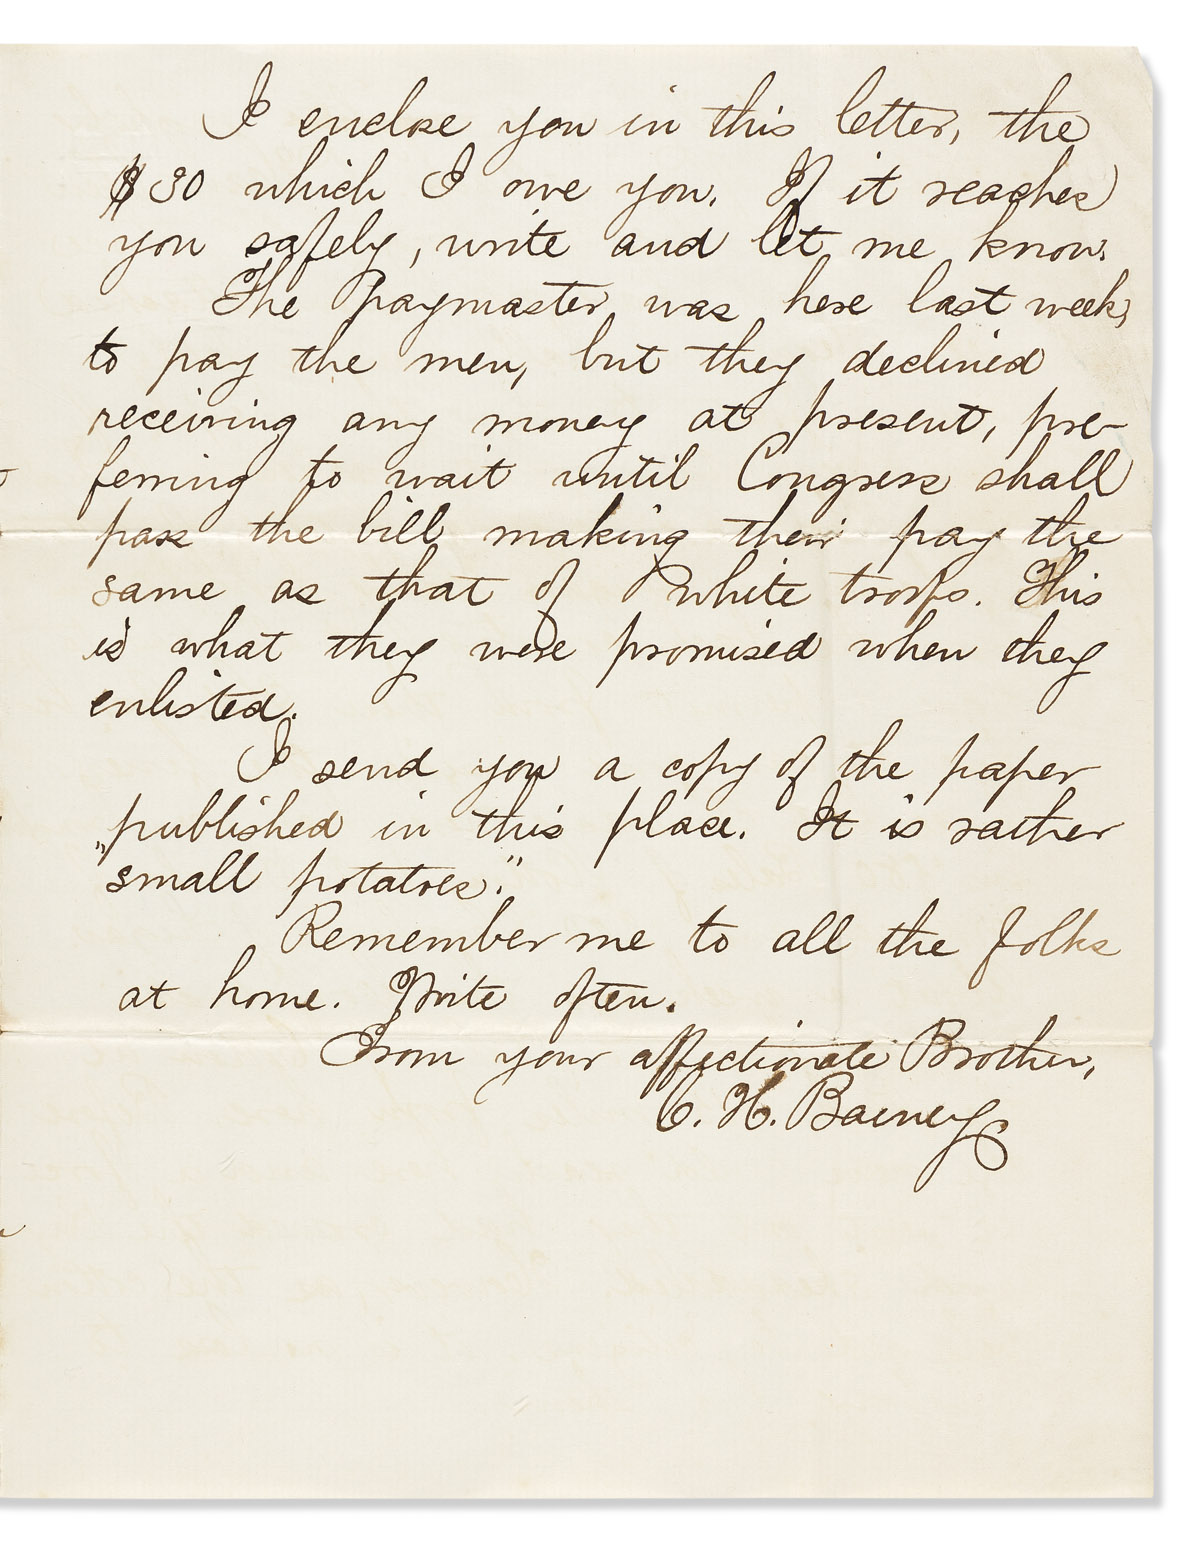 I enclose you in this letter, the
$30 which I owe you. If it reaches
you safely, write and let me know.
The Paymaster was here last week,
to pay the men, but they declined
receiving any money at present, pre-
ferring to wait until Congress shall
pass the bill making their pay the
same as that of white troops. This
is what they were promised when they
enlisted.
I send you a copy of the paper
published in this place. It is rather
„small potatoes."
Remember me to all the folks
at home. Write often.
From your affectionate Brother,
C. H. Barney